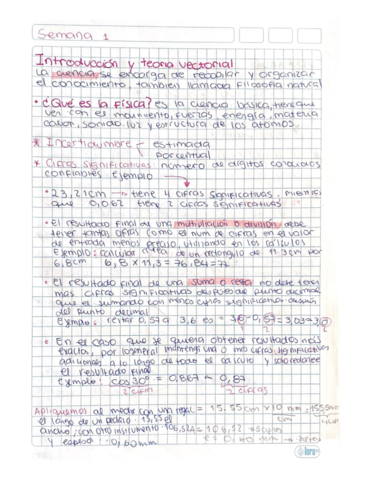 Semana 1
Introducción y teoria vectorial
La ciencia se encarga de recopilar y organizar
el conocimiento, tambien llamada Filosofia natural
• ¿Qué es la Física? es la ciencia básica, tiene que
ver con el movimiento, fuerzas, energía, materia
calor, sonido, luz y estructura de los átomos.
* Incertidumbre - estimada
porcentual
* Cifras significativas número de digitos conocidos
confiables Ejemplo
• 23,21cm → tiene 4 cifras significativas, mientras
que 0,062 tiene 2 cifras significativas
• El resultado final de una multiplicación o división debe
tener tantas cifras como el num de cifras en el valor
de entrada menos preciso, utilizando en los cálculos
Ejemplo: calcular de un rectangulo de 11.3 cm por
6,8cm 6,8 x 11,3 = 76,84 = 77
• El resultado final de una suma o resta no debe tener
mas cifras significativas después de punto decimal
que el sumando con menos cifras significativas después
del punto decimal
Ejemplo: restar 0,57 a 3,6 es = 3,6 - 0,57 = 3,03 = 3,0
1 2
• En el caso que se quiera obtener resultados más
exactos, por lo normal mantenga una o más cifras significativas
adicionales a lo largo de todo el calculo y solo redondee
el resultado final
Ejemplo: cos 30° = 0,867 ≈ 0,87
2 cifras 2 cifras
Apliquemos al medir con una regla = 15,55 cm x 10 mm = 155,5mm
el largo de un pedazo 15,55
cm
ancho, con otro instrumento 106,52
y espesor 0,60mm